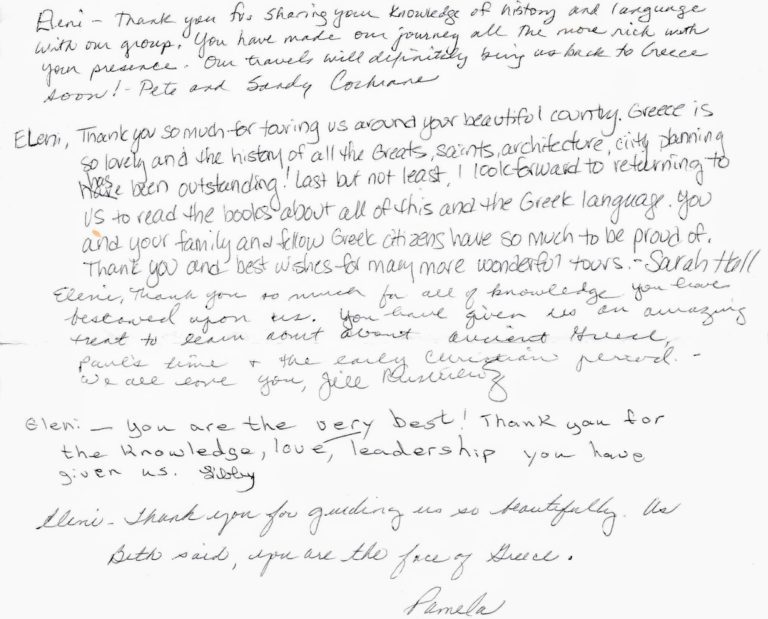 Eleni - Thank you for sharing your knowledge of history and language
with our group. You have made our journey all the more rich with
your presence. Our travels will definitely bring us back to Greece
soon! - Pete and Sandy Cochrane
Eleni, Thank you so much for touring us around your beautiful country. Greece is
so lovely and the history of all the Greats, saints, architecture, city planning
has been outstanding! Last but not least, I look forward to returning to
US to read the books about all of this and the Greek language. You
and your family and fellow Greek citizens have so much to be proud of.
Thank you and best wishes for many more wonderful tours. - Sarah Hall
Eleni, Thank you so much for all of knowledge you have
bestowed upon us. You have given us an amazing
treat to learn about ancient Greece,
Paul's time + the early Christian period. -
We all love you, Jill
Eleni - You are the very best! Thank you for
the knowledge, love, leadership you have
given us. Libby
Eleni - Thank you for guiding us so beautifully. As
Beth said, you are the face of Greece.
Pamela